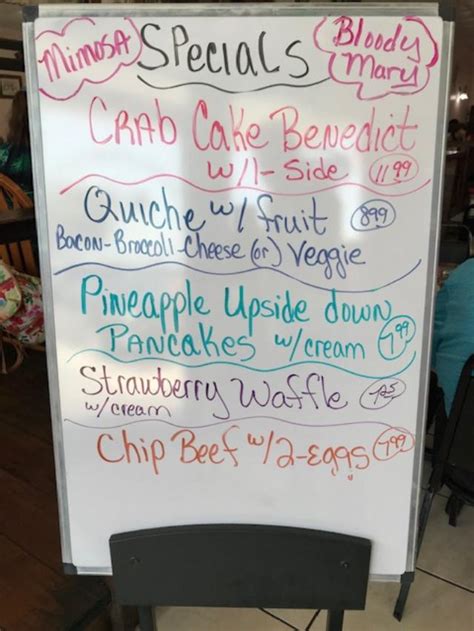 Mimosa
Specials
Bloody
Mary
Crab Cake Benedict
w/1-Side 11.99
Quiche w/ fruit 8.99
Bacon-Broccoli-Cheese (or) Veggie
Pineapple Upside down
Pancakes w/cream 7.99
Strawberry Waffle 7.25
w/cream
Chip Beef w/2-Eggs 7.99